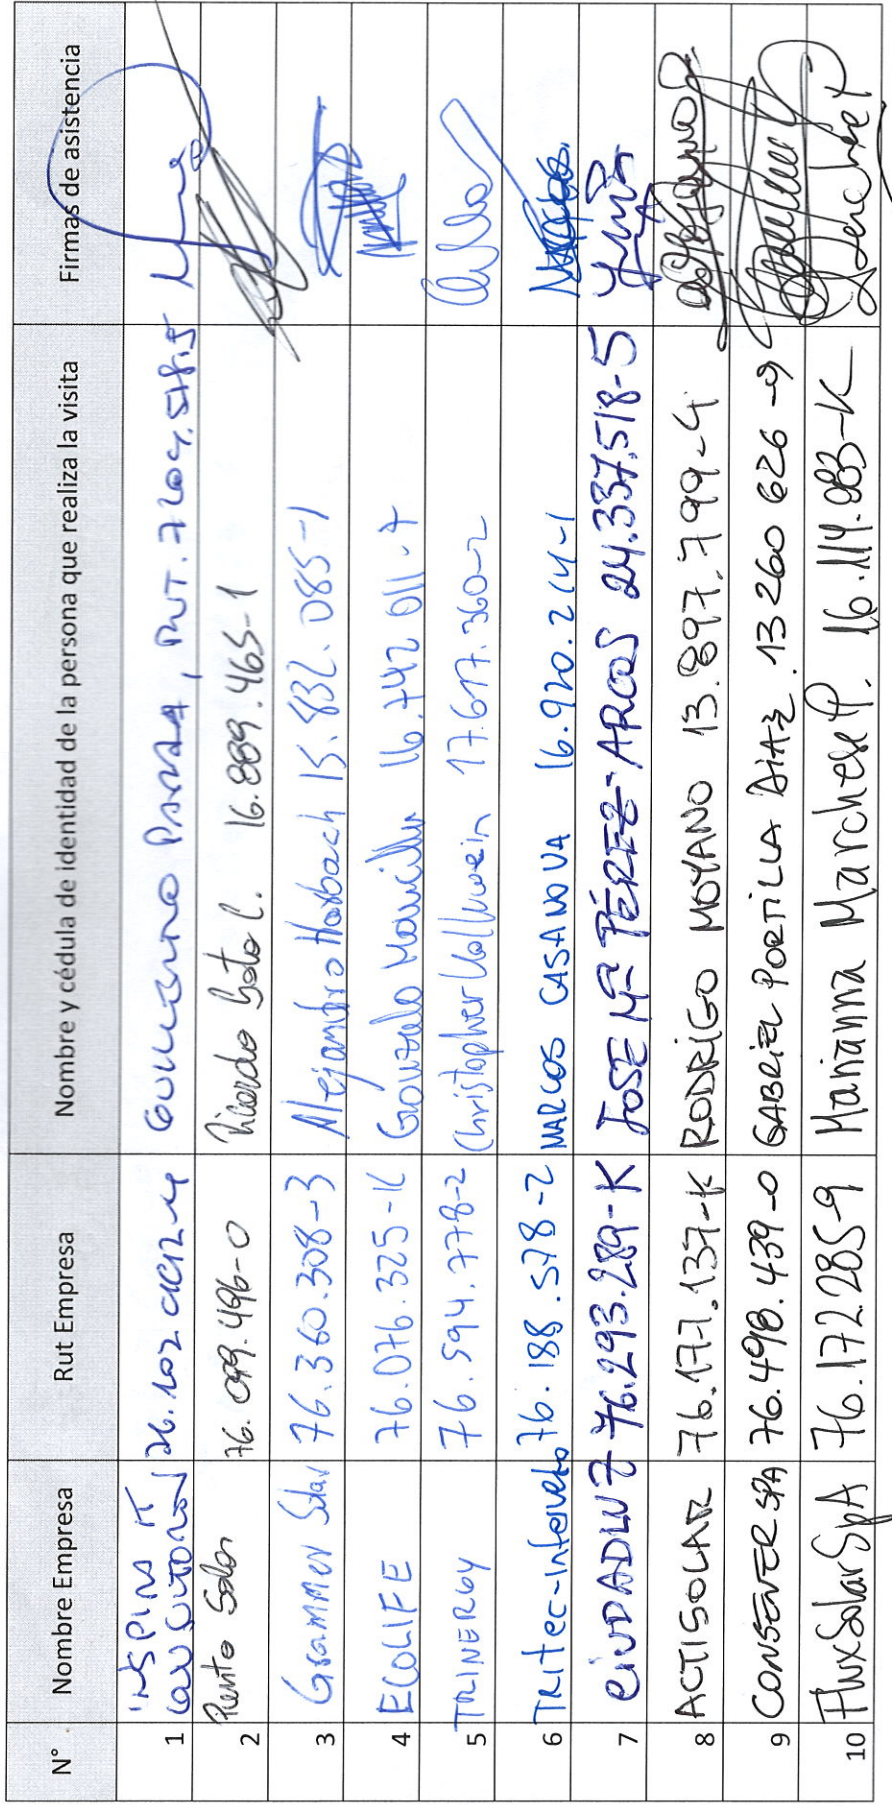 N° Nombre Empresa Rut Empresa Nombre y cédula de identidad de la persona que realiza la visita Firmas de asistencia
1
2 Punto Solar 76.099.496-0 Ricardo Soto C. 16.889.465-1
3 Grammer Solar 76.360.308-3 Alejandro Horbach 15.832.085-1
4 ECOLIFE 76.076.325-K Gonzalo Mancilla 16.742 011-7
5 TRINERGY 76.594.778-2 Christopher 17.617.360-2
6 Tritec-Intervento 76.188.578-2 MARCOS CASANOVA 16.920.214-1
7 CIUDADLUZ 76.293.289-K JOSE Mª PÉREZ-ARCOS 24.337.518-5
8 ACTISOLAR 76.177.137-K RODRIGO MOYANO 13.897.799-4
9 CONSENER SPA 76.498.439-0 GABRIEL PORTILLA DIAZ. 13 260 626-9
10 FluxSolar SpA 76.172.285-9 Marianna Marchese P. 16.114.983-K